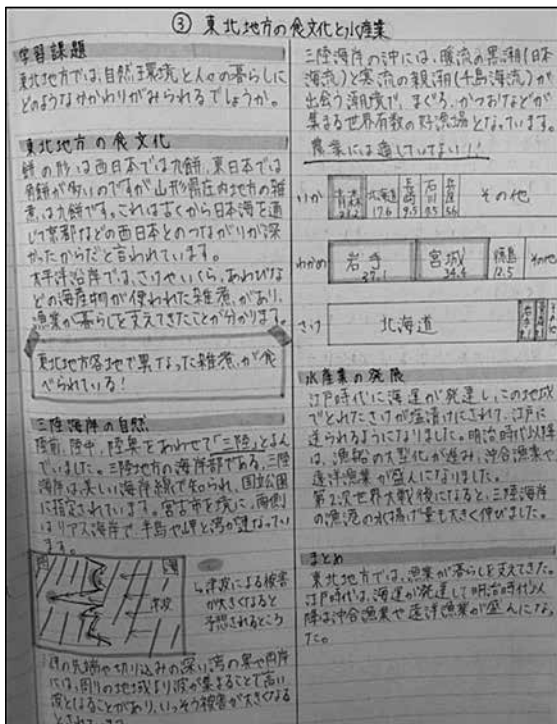 ③ 東北地方の食文化と水産業
学習課題
東北地方では、自然環境と人々の暮らしに
どのようなかかわりがみられるでしょうか。
東北地方の食文化
餅の形は西日本では丸餅、東日本では
角餅が多いのですが山形県庄内地方の雑
煮は丸餅です。これは古くから日本海を通
じて京都などの西日本とのつながりが深
かったからだと言われています。
太平洋沿岸では、さけやいくら、あわびな
どの海産物が使われた雑煮があり、
漁業が暮らしを支えてきたことが分かります。
東北地方各地で異なった雑煮が食
べられている!
三陸海岸の自然
陸前、陸中、陸奥をあわせて「三陸」とよん
でいました。三陸地方の海岸部である、三陸
海岸は、美しい海岸線で知られ、国立公園
に指定されています。宮古市を境に、南側
はリアス海岸で、半島や岬と湾が連なってい
ます。
津波
↳津波による被害
が大きくなると
予想されるところ
岬の先端や切り込みの深い湾の奥や
には、周りの地域より波が集まることで高い
波となることがあり、いっそう被害が大きくなる
とされています
三陸海岸の沖には、暖流の黒潮(日本
海流)と寒流の親潮(千島海流)が
出会う潮境で、まぐろ、かつおなどが
集まる世界有数の好漁場となっています。
農業には適していてない!!
いか 青森 北海道 17.6 長崎 9.5 石川 9.5 兵庫 5.6 その他
わかめ 岩手 宮城 徳島 12.5 その他
さけ 北海道
水産業の発展
江戸時代に海運が発達し、この地域
でとれたさけが塩漬けにされて、江戸に
送られるようになりました。明治時代以降
は、漁船の大型化が進み、沖合漁業や
遠洋漁業が盛んになりました。
第2次世界大戦後になると、三陸海岸
の漁港の水揚げ量も大きく伸びました。
まとめ
東北地方では、漁業が暮らしを支えてきた。
江戸時代は、海運が発達して明治時代以
降は沖合漁業や遠洋漁業が盛んになっ
た。